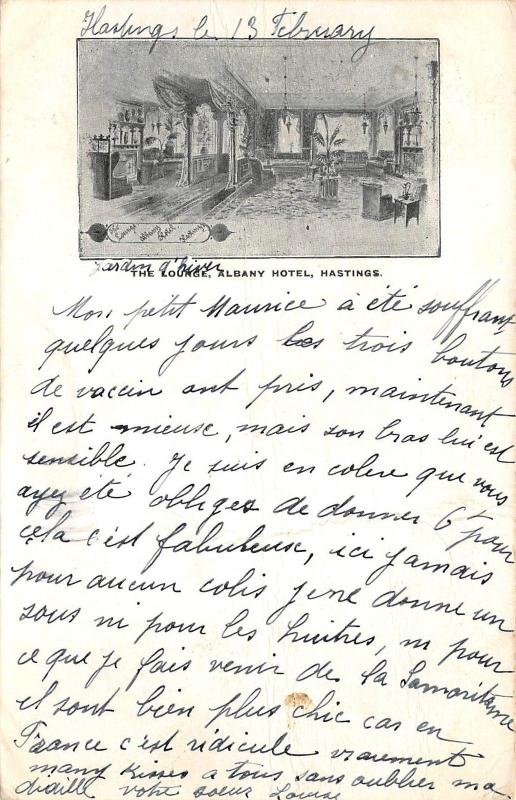 Hastings le 13 February
The Lounge Albany Hotel Hastings
Jardin d'hiver
THE LOUNGE, ALBANY HOTEL, HASTINGS.
Mon petit Maurice à été souffrant
quelques jours les trois boutons
de vaccin ont pris, maintenant
il est mieuse, mais son bras lui est
sensible. Je suis en colere que vous
ayez été obliges de donner 6 pour
cela c'est fabuleuse, ici jamais
pour aucun colis je ne donne un
sous ni pour les huitres, ni pour
ce que je fais venir de la Samaritaine
il sont bien plus chic car en
France c'est ridicule vraiement
many kisses a tous sans oublier ma
votre soeur Louise